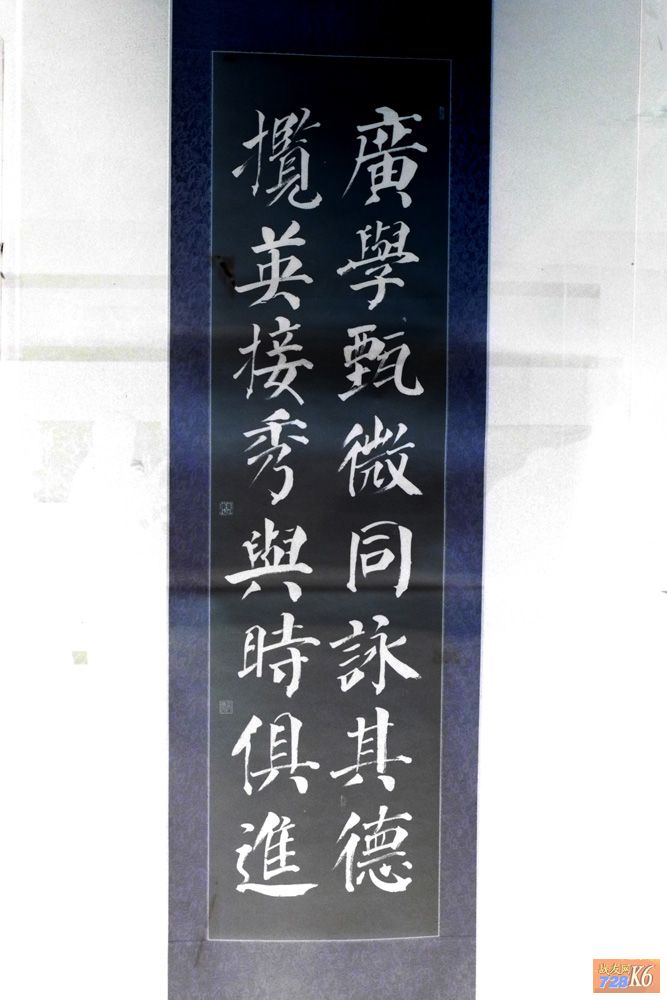 廣學甄微同詠其德
攬英接秀與時俱進
战友网
728K6